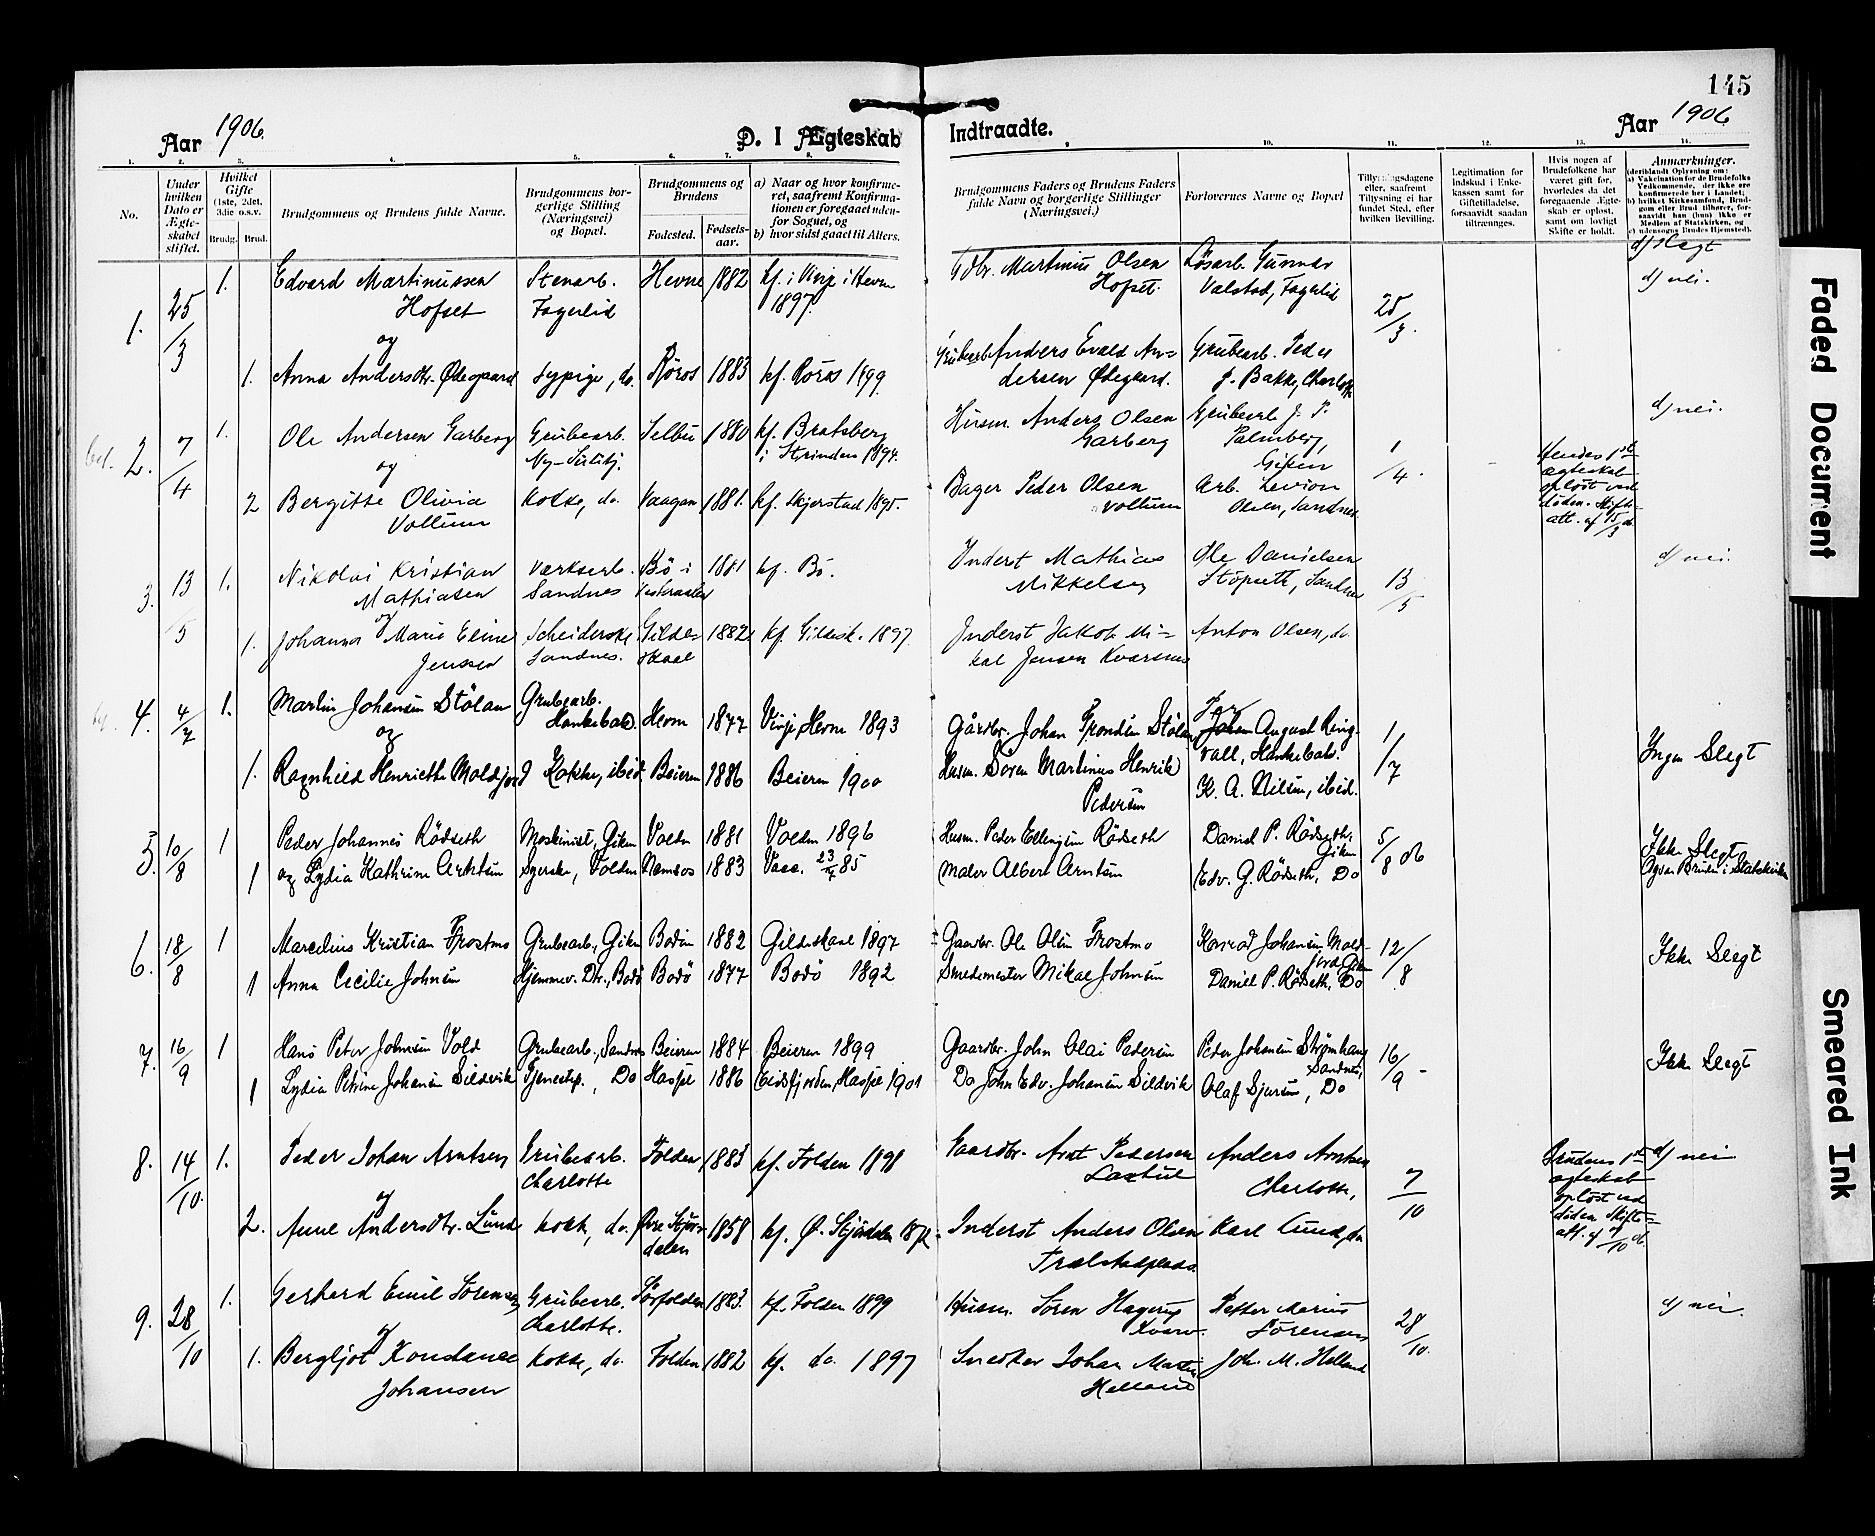 145
Aar 1906.
D. I Ægteskab Indtraadte.
Aar 1906
1. 2. 3. 4. 5. 6. 7. 8. 9. 10. 11. 12. 13. 14.
No.
Under hvilken Dato er Ægteskabet stiftet.
Hvilket Gifte (1ste, 2det, 3die o.s.v.
Brudg. Brud.
Brudgommens og Brudens fulde Navne.
Brudgommens borgerlige Stilling (Næringsvei) og Bopæl.
Brudgommens og Brudens
Fødested. Fødselsaar.
a) Naar og hvor konfirmeret, saafremt Konfirmationen er foregaaet udenfor Sognet, og
b) hvor sidst gaaet til Alters.
Brudgommens Faders og Brudens Faders fulde Navn og borgerlige Stillinger (Næringsvei.)
Forlovernes Navne og Bopæl
Tillysningsdagene eller, saafremt Tillysning ei har fundet Sted, efter hvilken Bevilling.
Legitimation for Indskud i Enkekassen samt for Giftetilladelse, forsaavidt saadan tiltrænges.
Hvis nogen af Brudefolkene har været gift før, hvorledes da det foregaaende Ægteskab er opløst, samt om lovligt Skifte er holdt.
Anmærkninger.
(deriblandt Oplysning om:
a) Vakcination for de Brudefolks Vedkommende, der ikke ere konfirmerede her i Landet;
b) hvilket Kirkesamfund, Brudgom eller Brud tilhører, forsaavidt han (hun) ikke er Medlem af Statskirken, og
c) udensogns Brudes Hjemsted).
d) slegt
1. 25/3 1. Edvard Martinussen Hofset Stenarb. Fagerlid Hevne 1882 kf. i Vinje i Hevne 1897. Gdbr. Martinus Olsen Hofset. Løsarb. Gunnar Valstad, Fagerlid 25/3. d) nei.
og
1. Anna Andersdtr. Ødegaard Sypige, do. Röros 1883 kf. Röros 1899. Grubearb. Anders Evald Andersen Ødegaard. Grubearb. Peder J. Bakke, Charlotte
2. 7/4 1. Ole Andersen Garberg Grubearb. Ny-Sulitj. Selbu 1880 kf. Bratsberg i Strinden 1894. Husm. Anders Olsen Garberg Grubearb. J. P. Palmberg, Giken 1/4. d) nei.
og
2 Bergitte Olivia Vollum Kokke, do. Vaagan 1881. kf. Skjerstad 1895. Bager Peder Olsen Vollum Arb. Levion Olsen, Sandnes Hendes 1ste ægteskab opløst ved døden. Skifteatt. af 15/3 d.
3. 13/5 1. Nikolai Kristian Mathiasen Værksarb. Sandnes Bö i Vesteraalen 1881 kf. Bö. Inderst Mathias Mikkelsen Ole Danielsen Störseth, Sandnes 13/5 d) nei.
og
1. Johanna Marie Eline Jenssen Scheiderske Sandnes. Gildeskaal 1882 kf. Gildesk. 1897. Inderst Jakob Mikal Jensen Kvarsnes Anton Olsen, do.
4. 4/7 1. Martin Johansen Stölan Grubearb. Hankabak. Hevne 1877 Vinje, Hevne 1893 Gårdbr. Johan Tronsen Stölan Johan August Ringvall, Hankabak. 1/7 Ingen Slegt
og
1. Ragnhild Henriette Moldjord Kokke, ibid Beieren 1886 Beieren 1900 Husm. Sören Martinus Henrik Pedersen K. A. Nilsen, ibid.
5. 10/8 1 Peder Johannes Rödseth Maskinist, Giken Volden 1881 Volden 1896 Husm. Peder Ellingsen Rödseth Daniel P. Rödseth, Giken 5/8 06 Ikke Slegt
1 og Lydia Kathrine Arntsen Syerske, Volden Namsos 1883 Vacc. 23/7 85 Maler Albert Arntsen Edv. G. Rödseth, Do
6. 18/8 1 Marcelius Kristian Trostmo Grubearb., Giken Bodin 1882 Gildeskaal 1897 Gaardbr. Ole Olsen Trostmo Konrad Johansen Moldjord, Giken 12/8 Ikke Slegt
1 Anna Cecilie Johnsen Hjemmev. Dtr., Bodö Bodö 1877 Bodö 1892 Smedemester Mikael Johnsen Daniel P. Rödseth, Do
7. 16/9 1 Hans Peter Johnsen Vold Grubearb., Sandnes Beieren 1884 Beieren 1899 Gaardbr. John Olai Pedersen Peder Johansen Strömhaug Sandnes, 16/9 Ikke Slegt
1 Lydia Petrine Johansen Sildvik Tjenestep., Do Hassel 1886 Eidsfjorden, Hassel 1901 Do John Edv. Johansen Sildvik Olaf Sjursen, Do
8. 14/10. 1. Peder Johan Arntsen Grubearb. Charlotte Folden 1883 kf. Folden 1898 Gaardbr. Arnt Pedersen Anders Arntsen Charlotte, 7/10 Brudens 1ste ægteskab opløst ved døden Skifteatt. af d) nei
og
2. Anne Andersdtr. Lund kokk, do. Øvre Stjørdalen 1858 kf. Ø. Stjørdalen Inderst Anders Olsen Karl Lund, do.
9. 28/10 1. Gerhard Emil Sörensen Grubearb. Charlotte. Sörfolden 1883. kf. Folden 1899 Husm. Sören Hagerup Kvarv. Petter Marius Sörensen 28/10. d) nei.
og
1. Bergljot Konstanse Johansen kokke, do. Folden 1882 kf. do. 1897 Snedker Johan Martin Helland Joh. M. Helland
Faded Document
Smeared Ink